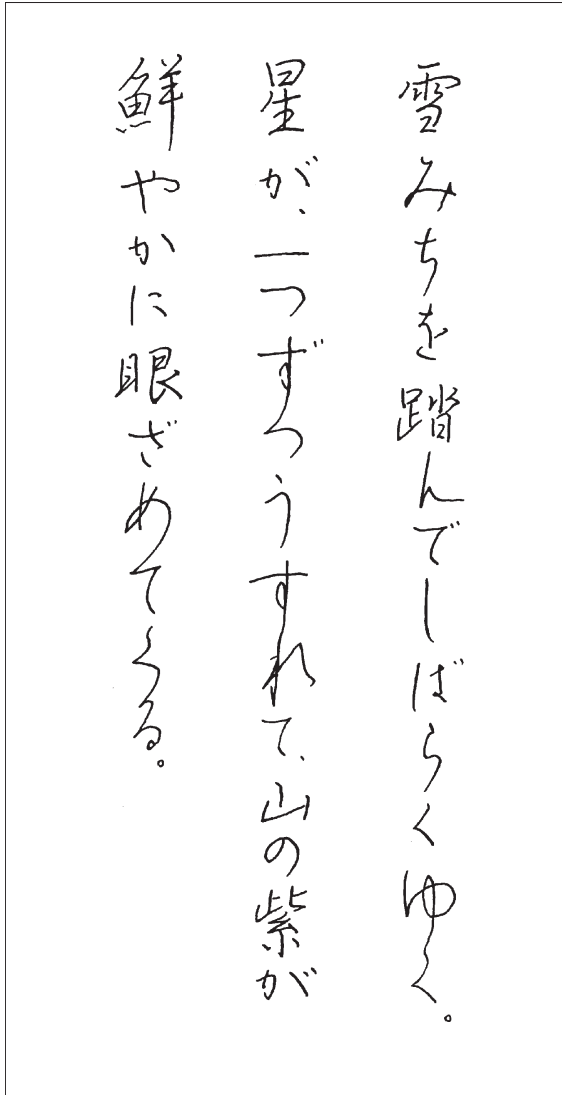 雪みちを踏んでしばらくゆく。
星が、一つずつうすれて、山の紫が
鮮やかに眼ざめてくる。